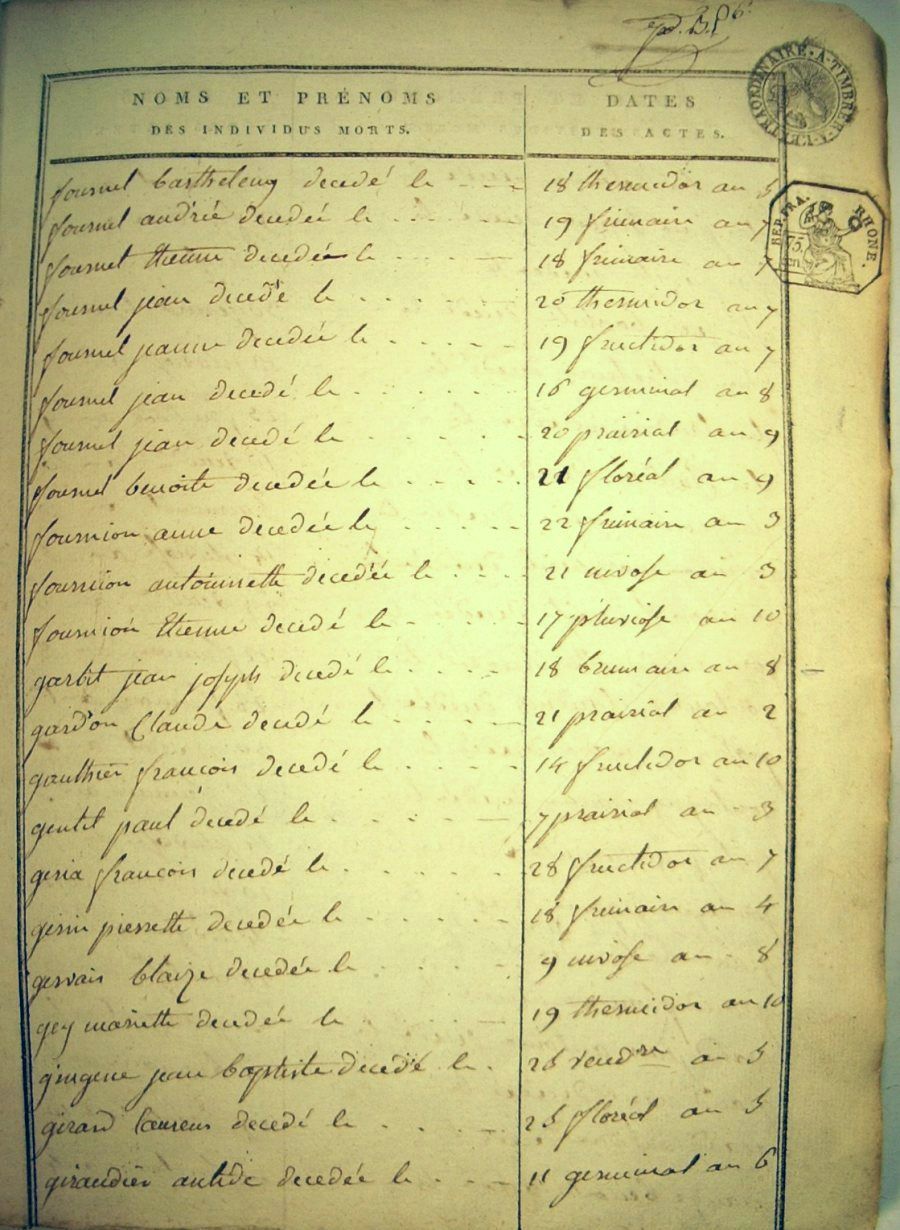 NOMS ET PRÉNOMS
DES INDIVIDUS MORTS.
DATES
DES ACTES.
EXTRAORDINAIRE. A. TIMBRER
REP. FRA. RHONE.
75
cen
fournel barthelemy decedé le 18 thermidor an 5
fournel andrée decedée le 19 frimaire an 7
fournel Etienne decedée le 18 frimaire an 7
fournel jean decedé le 20 thermidor an 7
fournel jeanne decedée le 19 fructidor an 7
fournel jean decedé le 16 germinal an 8
fournel jean decedé le 20 prairial an 9
fournel benoite decedée le 21 floréal an 9
fournion anne decedée le 22 frimaire an 3
fournion antoinette decedée le 21 nivose an 3
fournion Etienne decedé le 17 pluviose an 10
garbit jean joseph decedé le 18 brumaire an 8
gardon Claude decedé le 21 prairial an 2
gauthier francois decedé le 14 fructidor an 10
gentit paul decedé le 7 prairial an 3
francois decedé le 28 fructidor an 7
gerin pierrette decedée le 18 frimaire an 4
gervais blaize decedée le 9 nivose an 8
gey mariette decedée le 19 thermidor an 10
jean baptiste decedé le 25 vend.re an 5
girard Laurens decedé le 25 floréal an 5
giraudier antide decedée le 11 germinal an 6